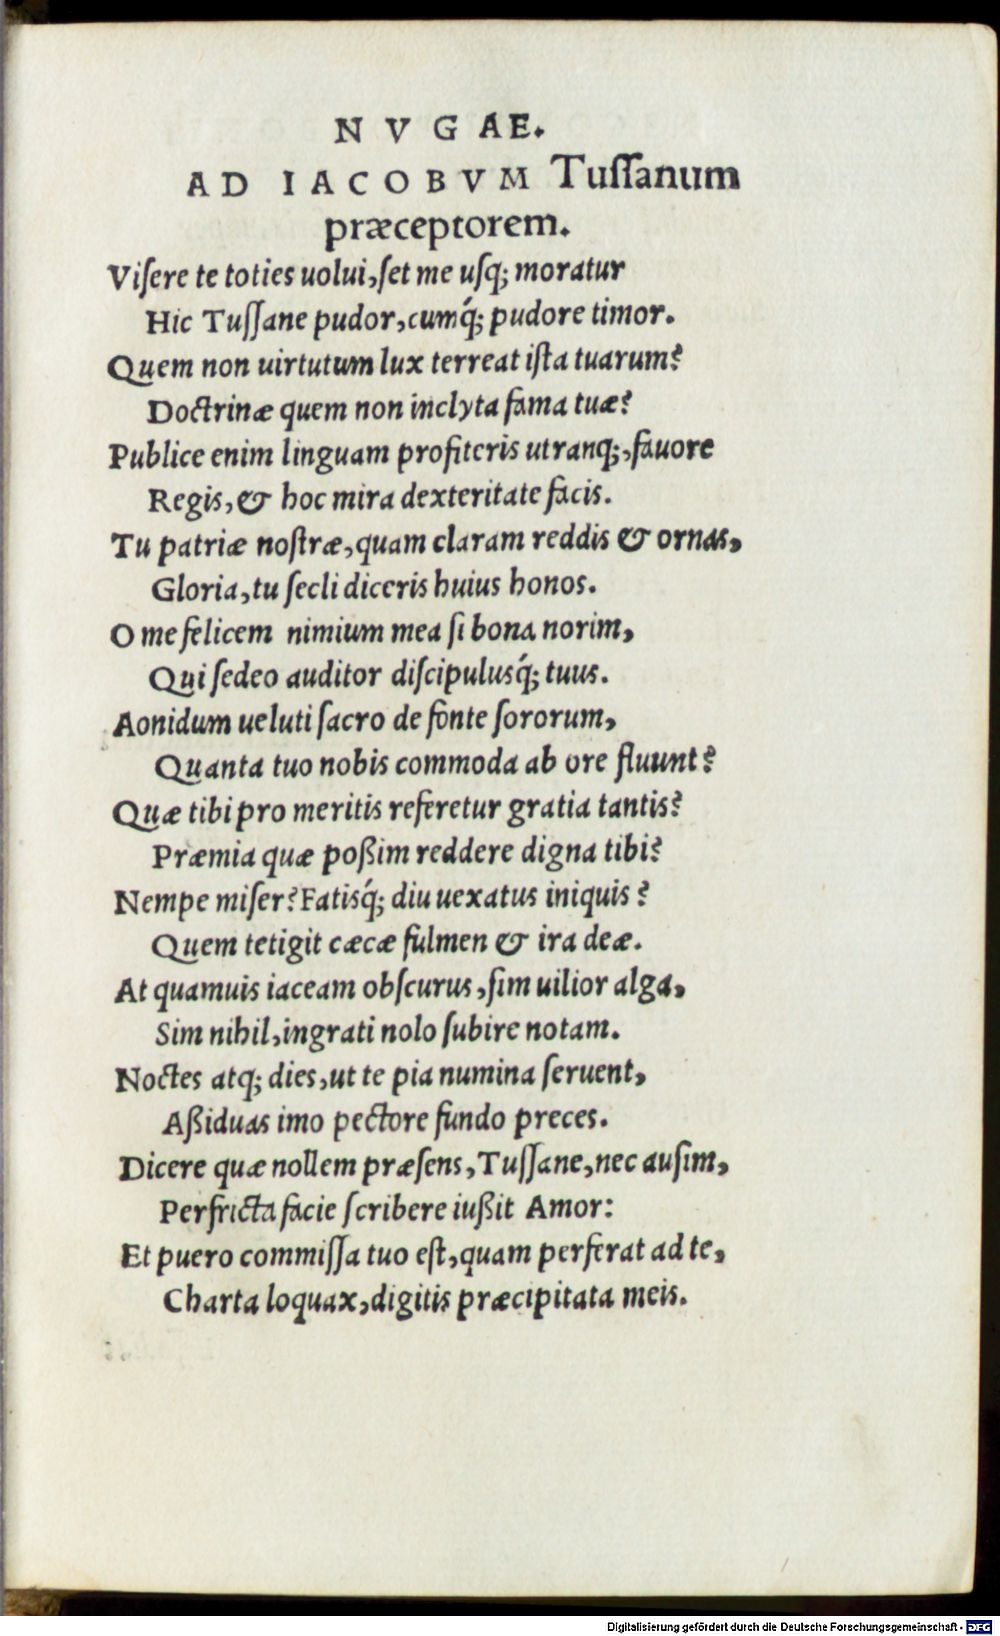 NVGAE.
AD IACOBVM Tuſſanum
præceptorem.
Viſere te toties uolui, ſet me uſq; moratur
Hic Tuſſane pudor, cumq́; pudore timor.
Quem non uirtutum lux terreat iſta tuarum?
Doctrinæ quem non inclyta fama tuæ?
Publice enim linguam profiteris utranq;, fauore
Regis, & hoc mira dexteritate facis.
Tu patriæ noſtræ, quam claram reddis & ornas,
Gloria, tu ſecli diceris huius honos.
O me felicem nimium mea ſi bona norim,
Qui ſedeo auditor diſcipulusq́; tuus.
Aonidum ueluti ſacro de fonte ſororum,
Quanta tuo nobis commoda ab ore fluunt?
Quæ tibi pro meritis referetur gratia tantis?
Præmia quæ poßim reddere digna tibi?
Nempe miſer? Fatisq́; diu uexatus iniquis?
Quem tetigit cæcæ fulmen & ira deæ.
At quamuis iaceam obſcurus, ſim uilior alga,
Sim nihil, ingrati nolo ſubire notam.
Noctes atq; dies, ut te pia numina ſeruent,
Aßiduas imo pectore fundo preces.
Dicere quæ nollem præſens, Tuſſane, nec auſim,
Perfricta facie ſcribere iußit Amor:
Et puero commiſſa tuo eſt, quam perferat ad te,
Charta loquax, digitis præcipitata meis.
Digitalisierung gefördert durch die Deutsche Forschungsgemeinschaft - DFG